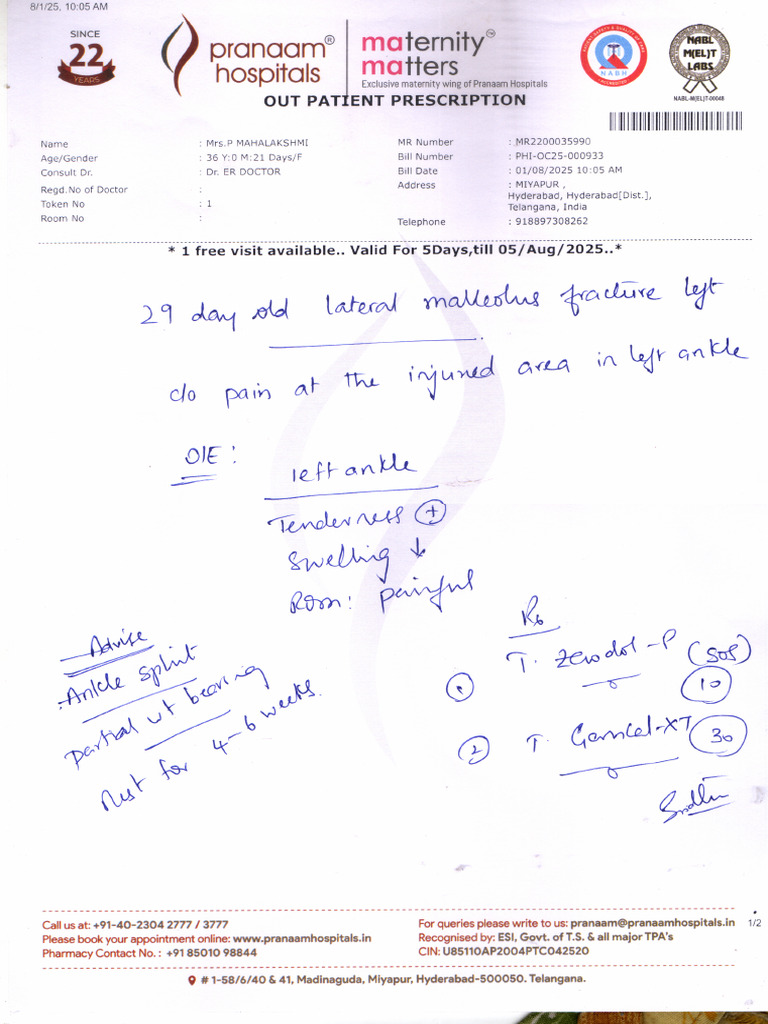 8/1/25, 10:05 AM
SINCE
22
YEARS
pranaam® hospitals
maternity™ matters
Exclusive maternity wing of Pranaam Hospitals
NABH
NABL
M(EL)T
LABS
NABL-M(EL)T-00048
OUT PATIENT PRESCRIPTION
Name : Mrs.P MAHALAKSHMI
Age/Gender : 36 Y:0 M:21 Days/F
Consult Dr. : Dr. ER DOCTOR
Regd.No of Doctor :
Token No : 1
Room No :
MR Number : MR2200035990
Bill Number : PHI-OC25-000933
Bill Date : 01/08/2025 10:05 AM
Address : MIYAPUR ,
Hyderabad, Hyderabad[Dist.],
Telangana, India
Telephone : 918897308262
* 1 free visit available.. Valid For 5Days,till 05/Aug/2025..*
29 day old lateral malleolus fracture left
c/o pain at the injured area in left ankle
O/E :
left ankle
Tenderness +
Swelling ↓
ROM: painful
Advise
Ankle splint
Partial wt bearing
Rest for 4-6 weeks.
Rx
1 T. Zerodol-P (SOS) 10
2 T. Gemcal-XT 30
Call us at: +91-40-2304 2777 / 3777
Please book your appointment online: www.pranaamhospitals.in
Pharmacy Contact No. : +91 85010 98844
For queries please write to us: pranaam@pranaamhospitals.in
Recognised by: ESI, Govt. of T.S. & all major TPA's
CIN: U85110AP2004PTC042520
1/2
# 1-58/6/40 & 41, Madinaguda, Miyapur, Hyderabad-500050. Telangana.